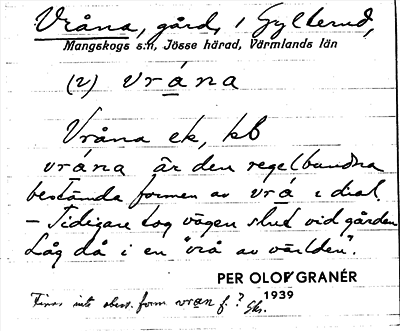 Vråna, gård, i Gylterud,
Mangskogs s:n, Jösse härad, Värmlands län
(v) vrána
Vråna ek, kb
vrána är den regelbundna
bestämda formen av vrá i dial.
– Tidigare tog vägen slut vid gården
Låg då i en "vrå av världen".
PER OLOF GRANÉR
1939
Finns inte obest. form vran f.?